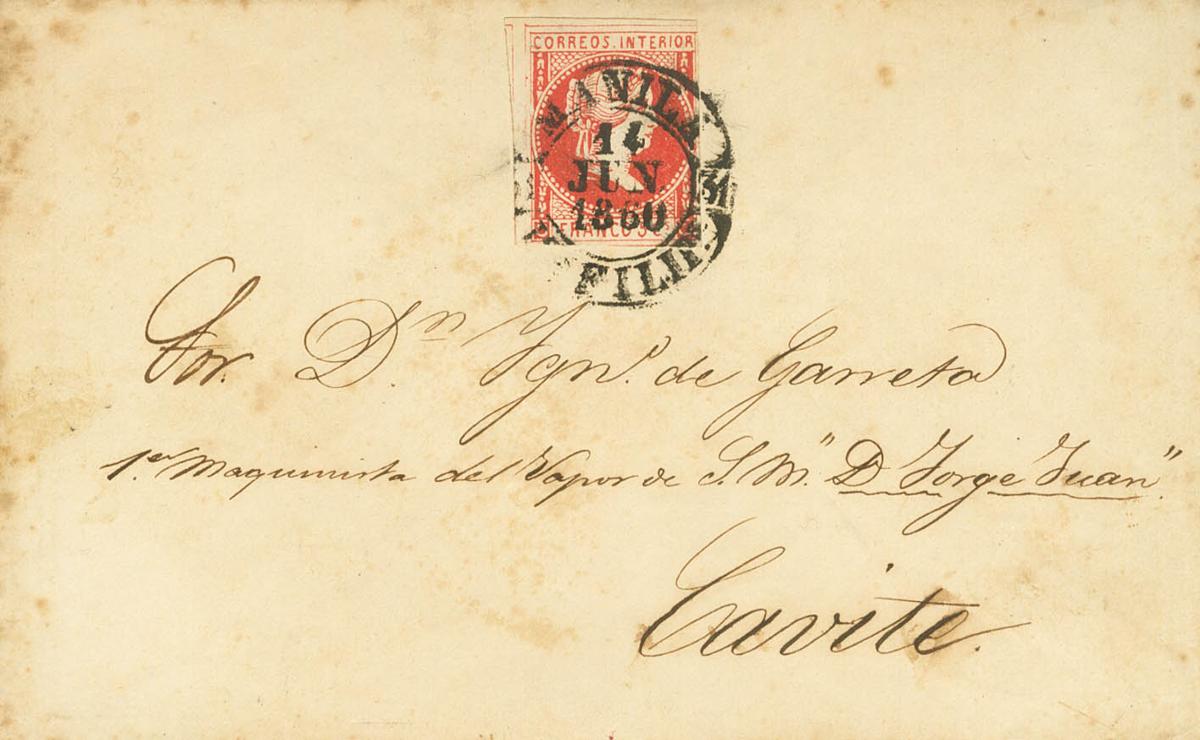 CORREOS. INTERIOR
MANILA
14
JUN
1860
31
FRANCO 5 Cs
FILIP.
Sor. Dn. Ygno. de Garreta
1er. Maquinista del Vapor de S. M. "Dn Jorge Juan".
Cavite.